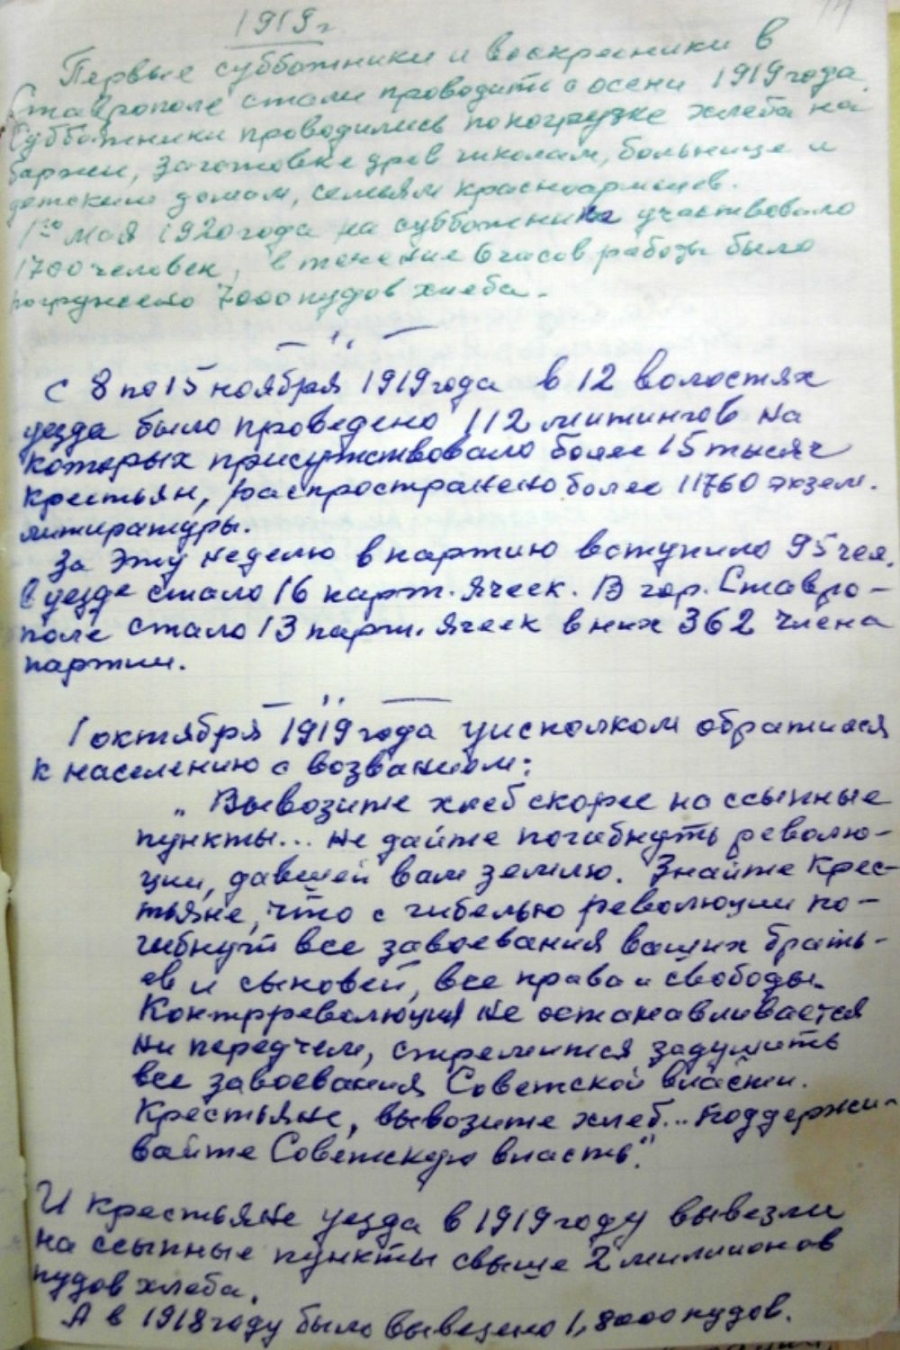 1919 г.
Первые субботники и воскресники в
Ставрополе стали проводить с осени 1919 года.
Субботники проводились по погрузке хлеба на
баржи, заготовке дров школам, больнице и
детским домам, семьям красноармейцев.
1го мая 1920 года на субботнике участвовало
1700 человек, в течение 6 часов работы было
погружено 7000 пудов хлеба.
С 8 по 15 ноября 1919 года в 12 волостях
уезда было проведено 112 митингов на
которых присутствовало более 15 тысяч
крестьян, распространено более 11760 экзем.
литиратуры.
За эту неделю в партию вступило 95 чел.
В уезде стало 16 парт. ячеек. В гор. Ставро-
поле стало 13 парт. ячеек в них 362 члена
партии.
1 октября 1919 года уисполком обратился
к населению с возванием:
„Вывозите хлеб скорее на ссыпные
пункты... Не дайте погибнуть револю-
ции, давшей вам землю. Знайте крес-
тьяне, что с гибелью революции по-
гибнут все завоевания ваших брать-
ев и сыновей, все права и свободы.
Контрреволюция не останавливается
ни перед чем, стремится задушить
все завоевания Советской власти.
Крестьяне, вывозите хлеб... Поддержи-
вайте Советскую власть."
И крестьяне уезда в 1919 году вывезли
на ссыпные пункты свыше 2 миллионов
пудов хлеба.
А в 1918 году было вывезено 1,8000 пудов.